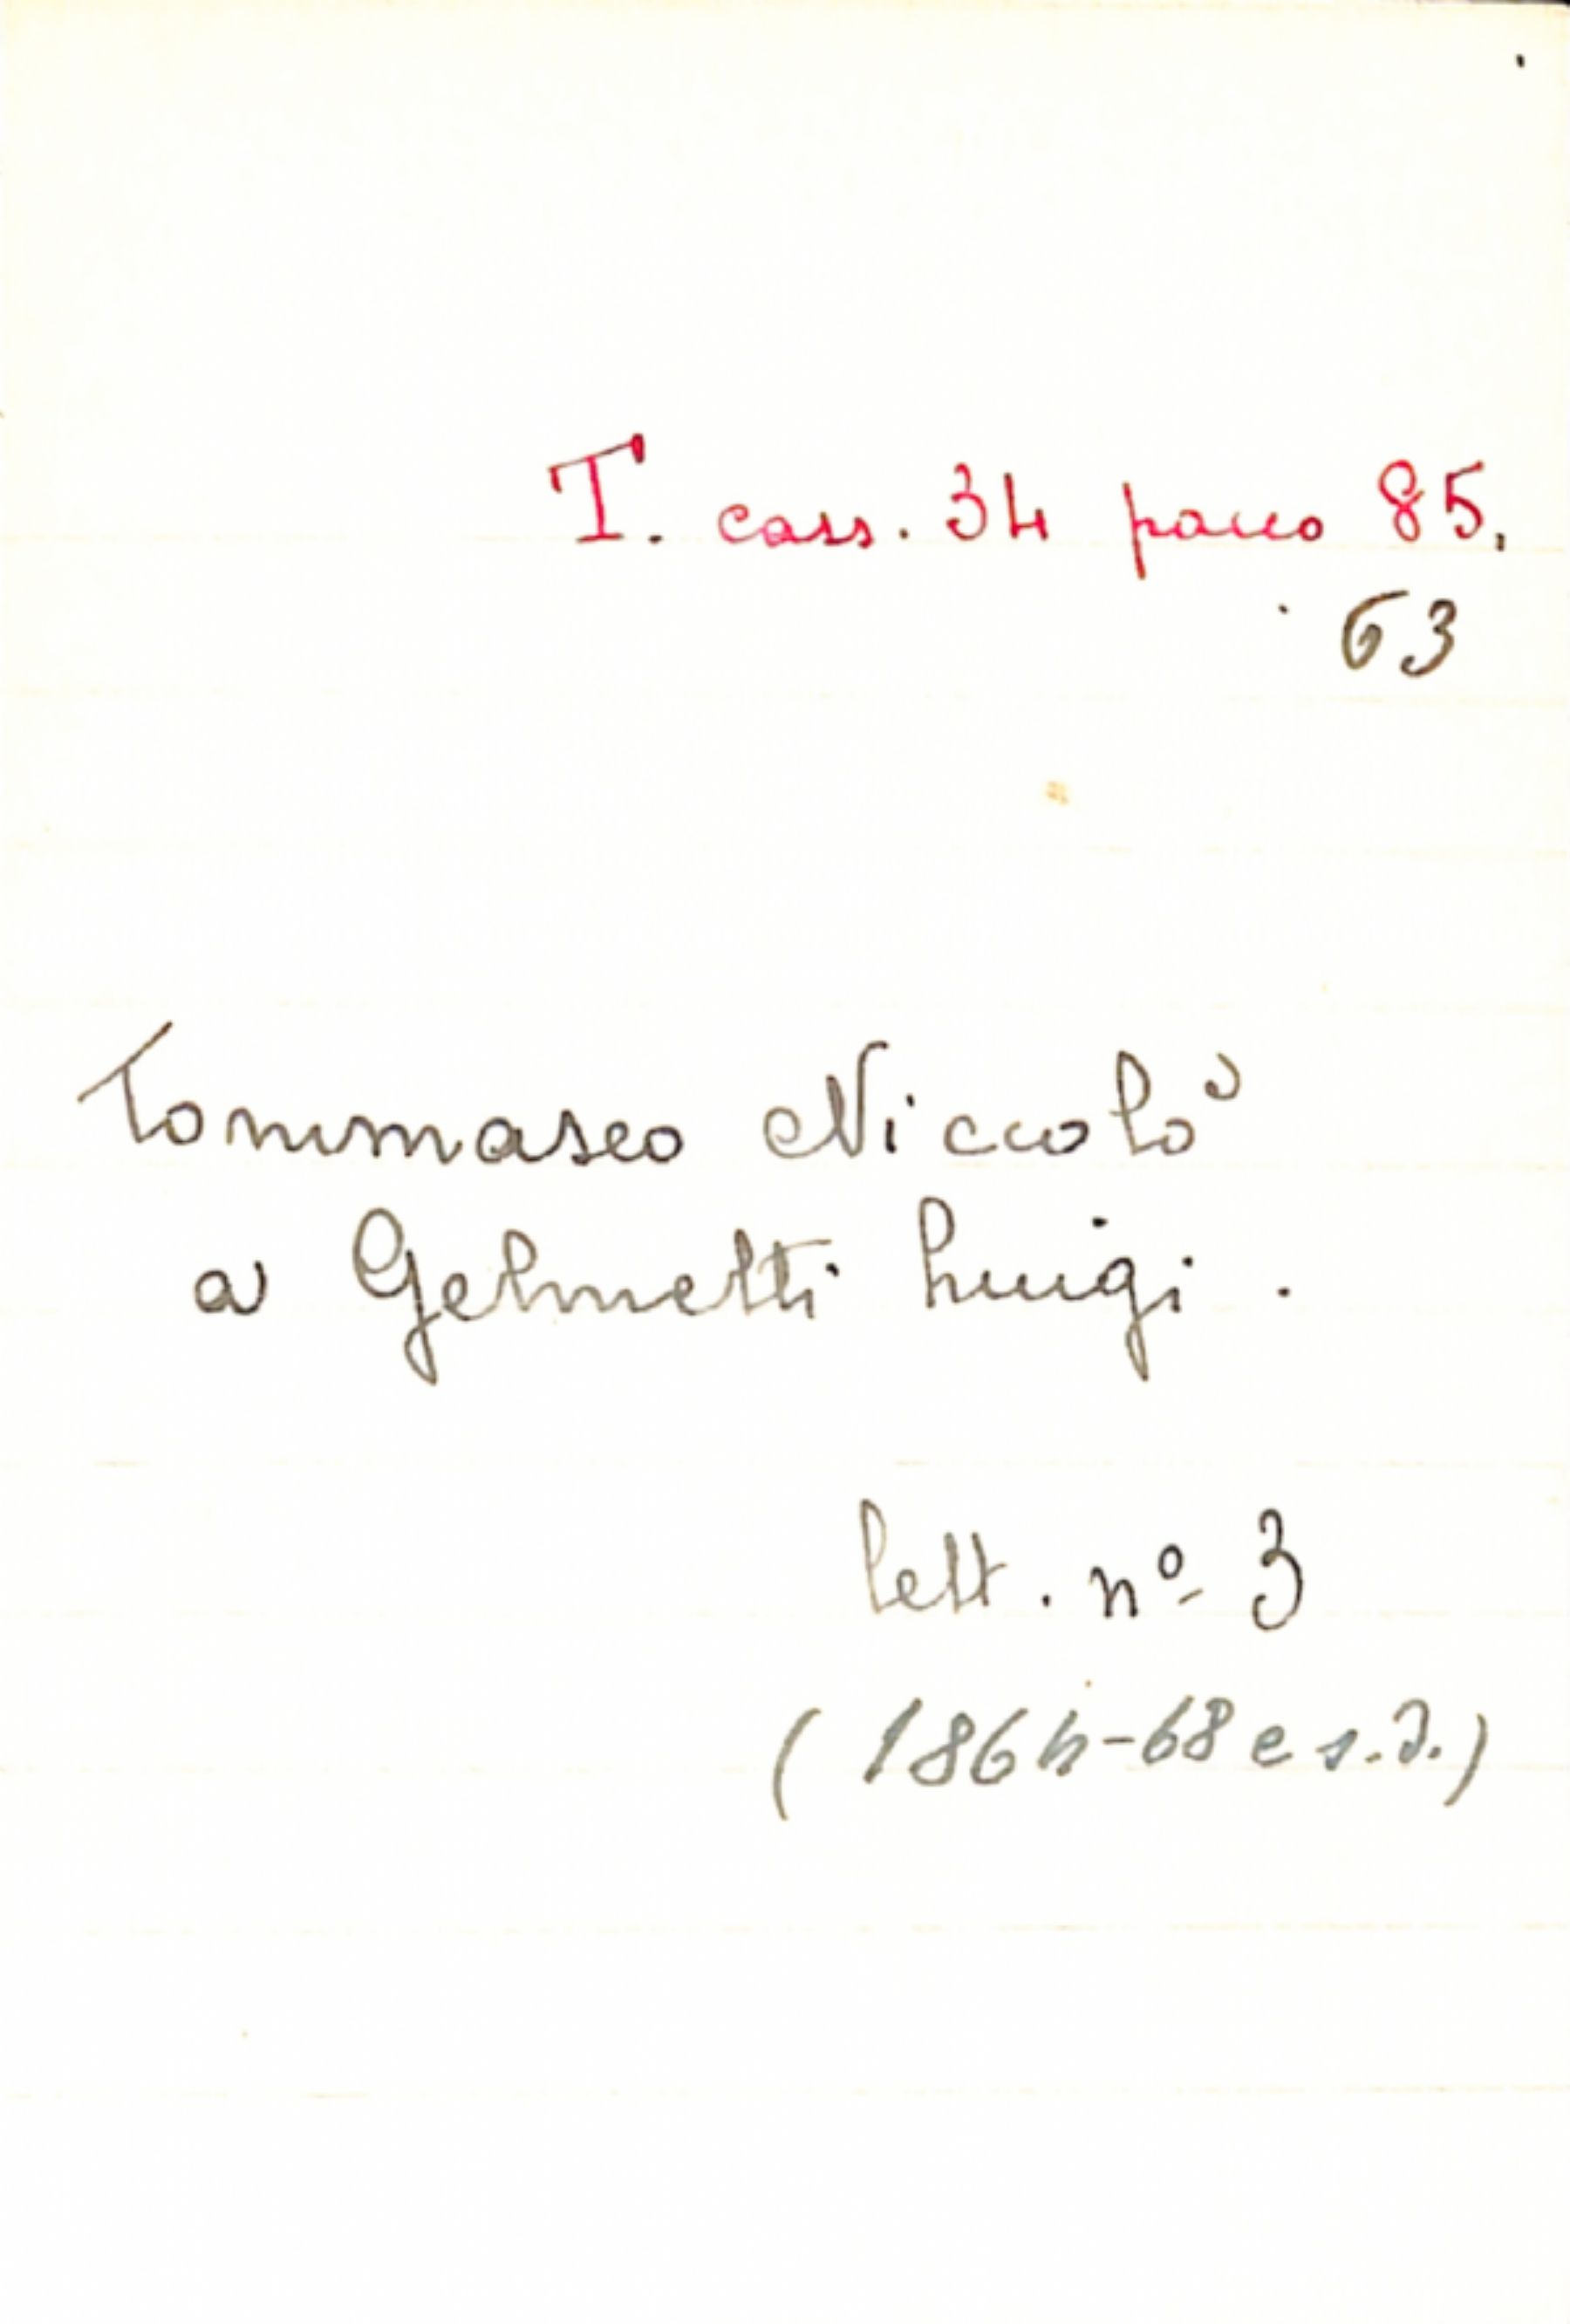 T. cass. 34 pacco 85.
63
Tommaseo Niccolò
a Gelmetti Luigi.
lett. nº 3
(1864-68 e s.d.)